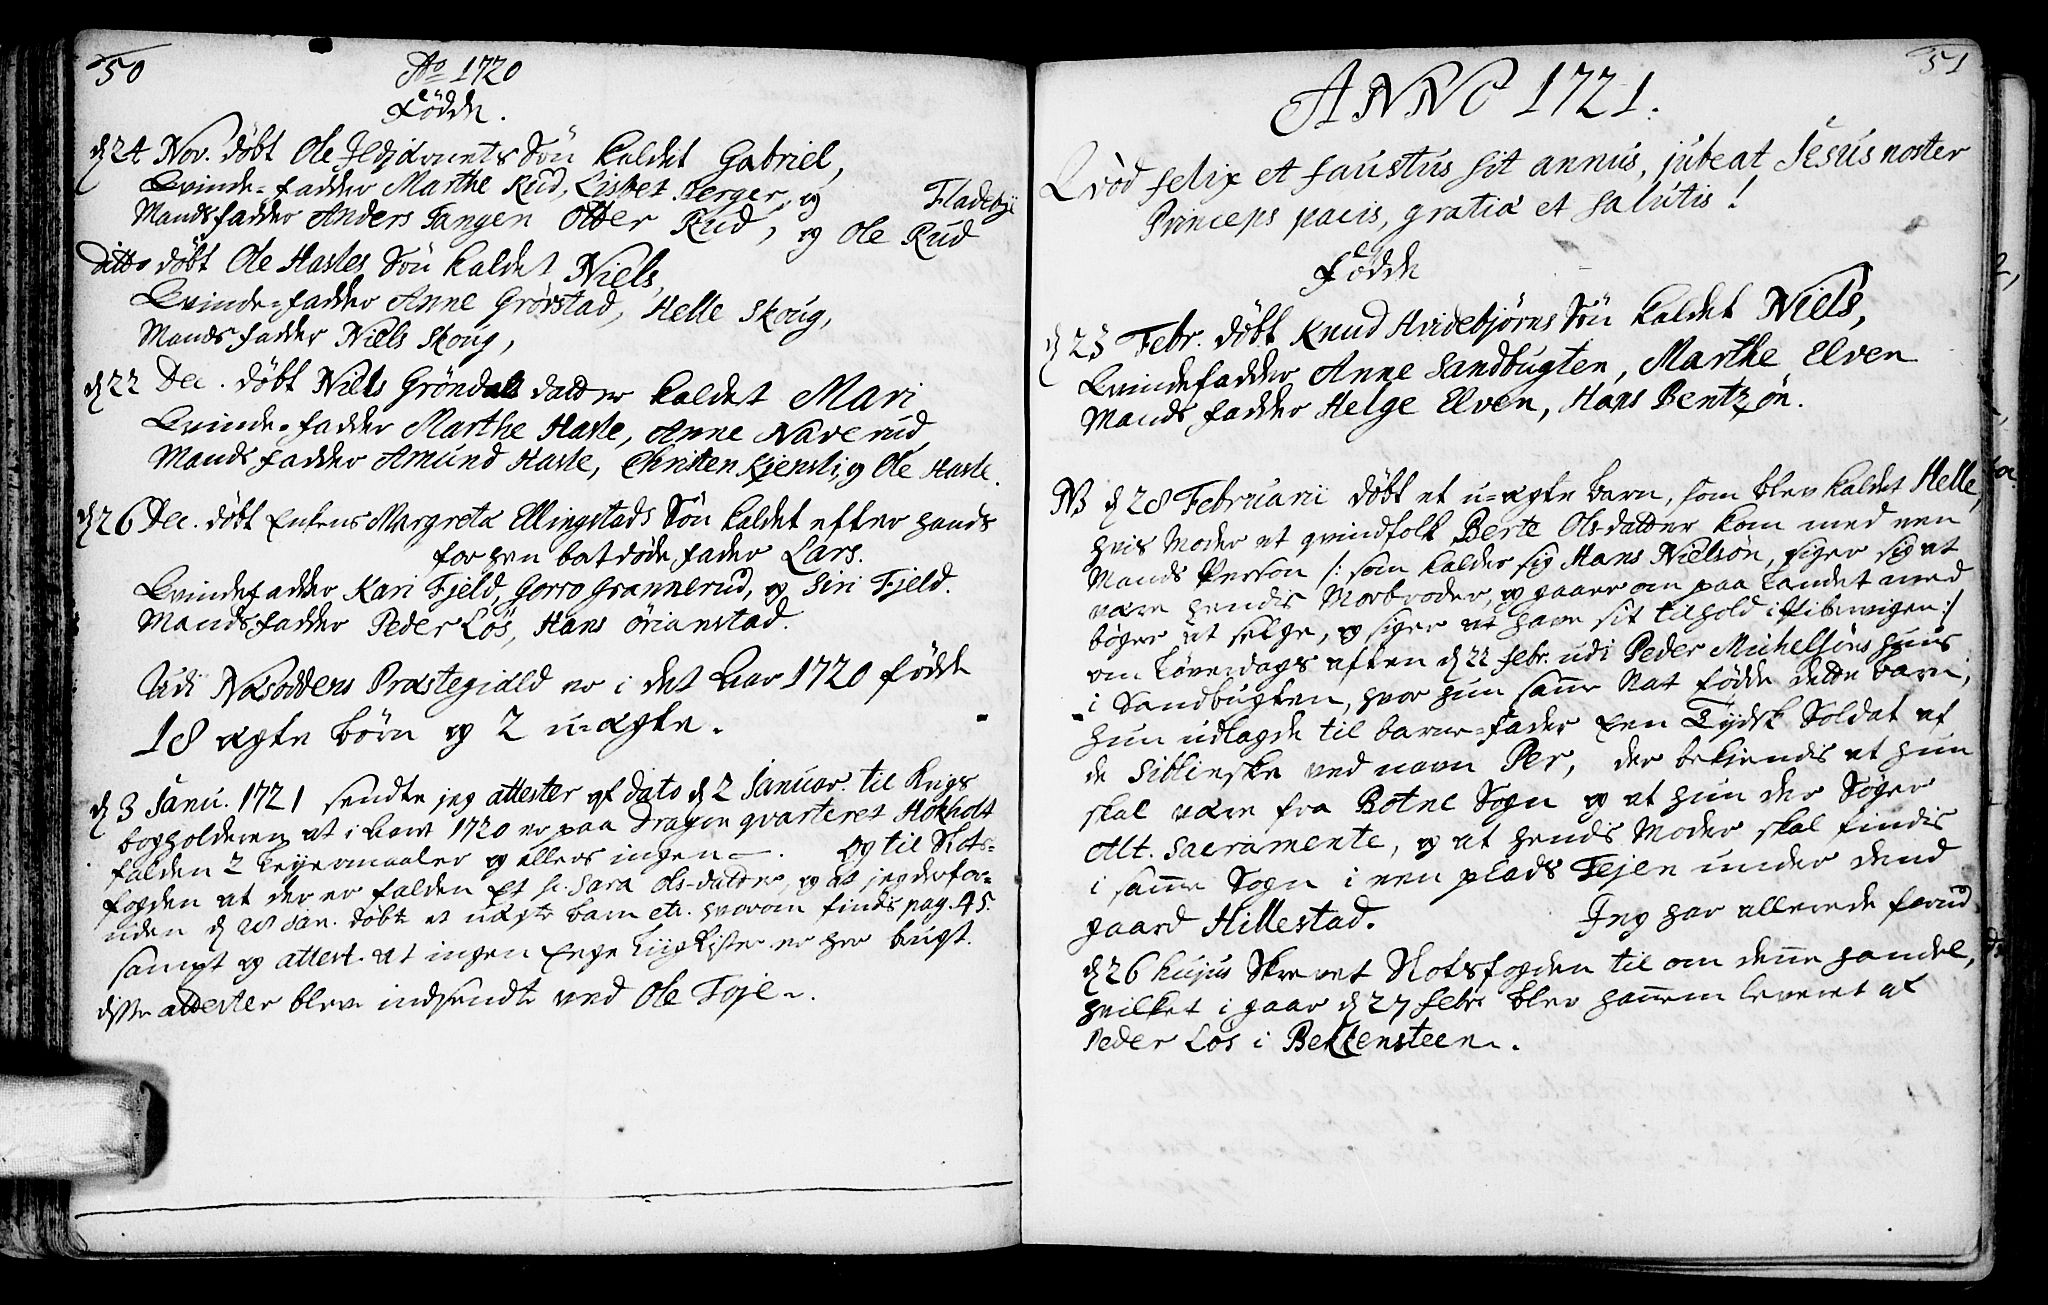 50
Ao 1720
Födde.
d 24 Nov. döbt Ole Ildjernets Sön kaldet Gabriel,
Qvinde-fadder Marthe Rud, Lisbet Berger, og Fladebye
Mandsfadder Anders Tangen Otter Rud, og Ole Rud
Ditto döbt Ole Hasles Sön kaldet Niels,
Qvinde-fadder Anne Grörstad, Helle Skoug,
Mandsfadder Niels Skoug,
d 22 Dec. döbt Niels Gröndals datter kaldet Mari
Qvinde-fadder Marthe Hasle, Anne Naverud,
Mandsfadder Amund Hasle, Christen Kjensli, og Ole Hasle.
d 26 Dec. döbt Enkens Margreta Ellingstads Sön kaldet efter hands
for hen batdöde fader Lars.
Qvindefadder Kari Fjeld, Gorro Grannerud, og Siri Fjeld.
Mandsfadder Peder Lös, Hans Örianstad.
Udi Næsoddens Præstegield er i det Aar 1720 födde
18 ægte börn og 2 u-ægte.
d 3 Janu. 1721 sendte jeg attester af dato d 2 Januar. til Krigs
bogholderen at i Aaret 1720 er paa Dragon qvarteret Hökholt
falden 2 Leyermaaler og ellers ingen. Og til Slots-
fogden at der er falden Et sc. Sara Ols-datter, og at jeg derfor-
uden d 28 Jan. döbte et uægte barn etc. hvorom findis pag. 45.
sampt og attest. at ingen Ege Liigkister er her brugt.
disse attester blev indsendte ved Ole Foje.
51
ANNO 1721.
Qvod felix et faustus sit annus, jubeat Jesus noster
Princeps pacis, gratiæ et salutis!
Födde
d 23 Febr. döbt Knud Hvidebjörns Sön kaldet Niels,
Qvindefadder Anne Sandbugten, Marthe Elven
Mandsfadder Helge Elven, Hans Bentzön.
NB d 28 Februarii döbt et u-ægte barn, som blev kaldet Helle,
hvis Moder et qvindfolk Berte Ols-datter kom med een
Mands Person /: som kalder sig Hans Nielsön, siger sig at
være hendis Morbroder, og gaaer om paa Landet med
böger at selge, og siger at have sit tilhold i Pibervigen :/
om Löverdags aften d 22 febr. udi Peder Michelsöns huus
i Sandbugten, hvor hun samme Nat födde dette barn;
hun udlagde til barne-fader Een Tydsk Soldat af
de Siblinske ved navn Per, der bekiendis at hun
skal være fra Botne Sogn og at hun der Söger
Alt. Sacramente, og at hendis Moder skal findis
i samme Sogn i een plads Fejen under dend
gaard Hillestad. Jeg har allerede forud
d 26 hujus Skrevet Slotsfogden til om denne handel,
hvilket i gaar d 27 febr blev hannem leveret af
Peder Lös i Bekkensteen.